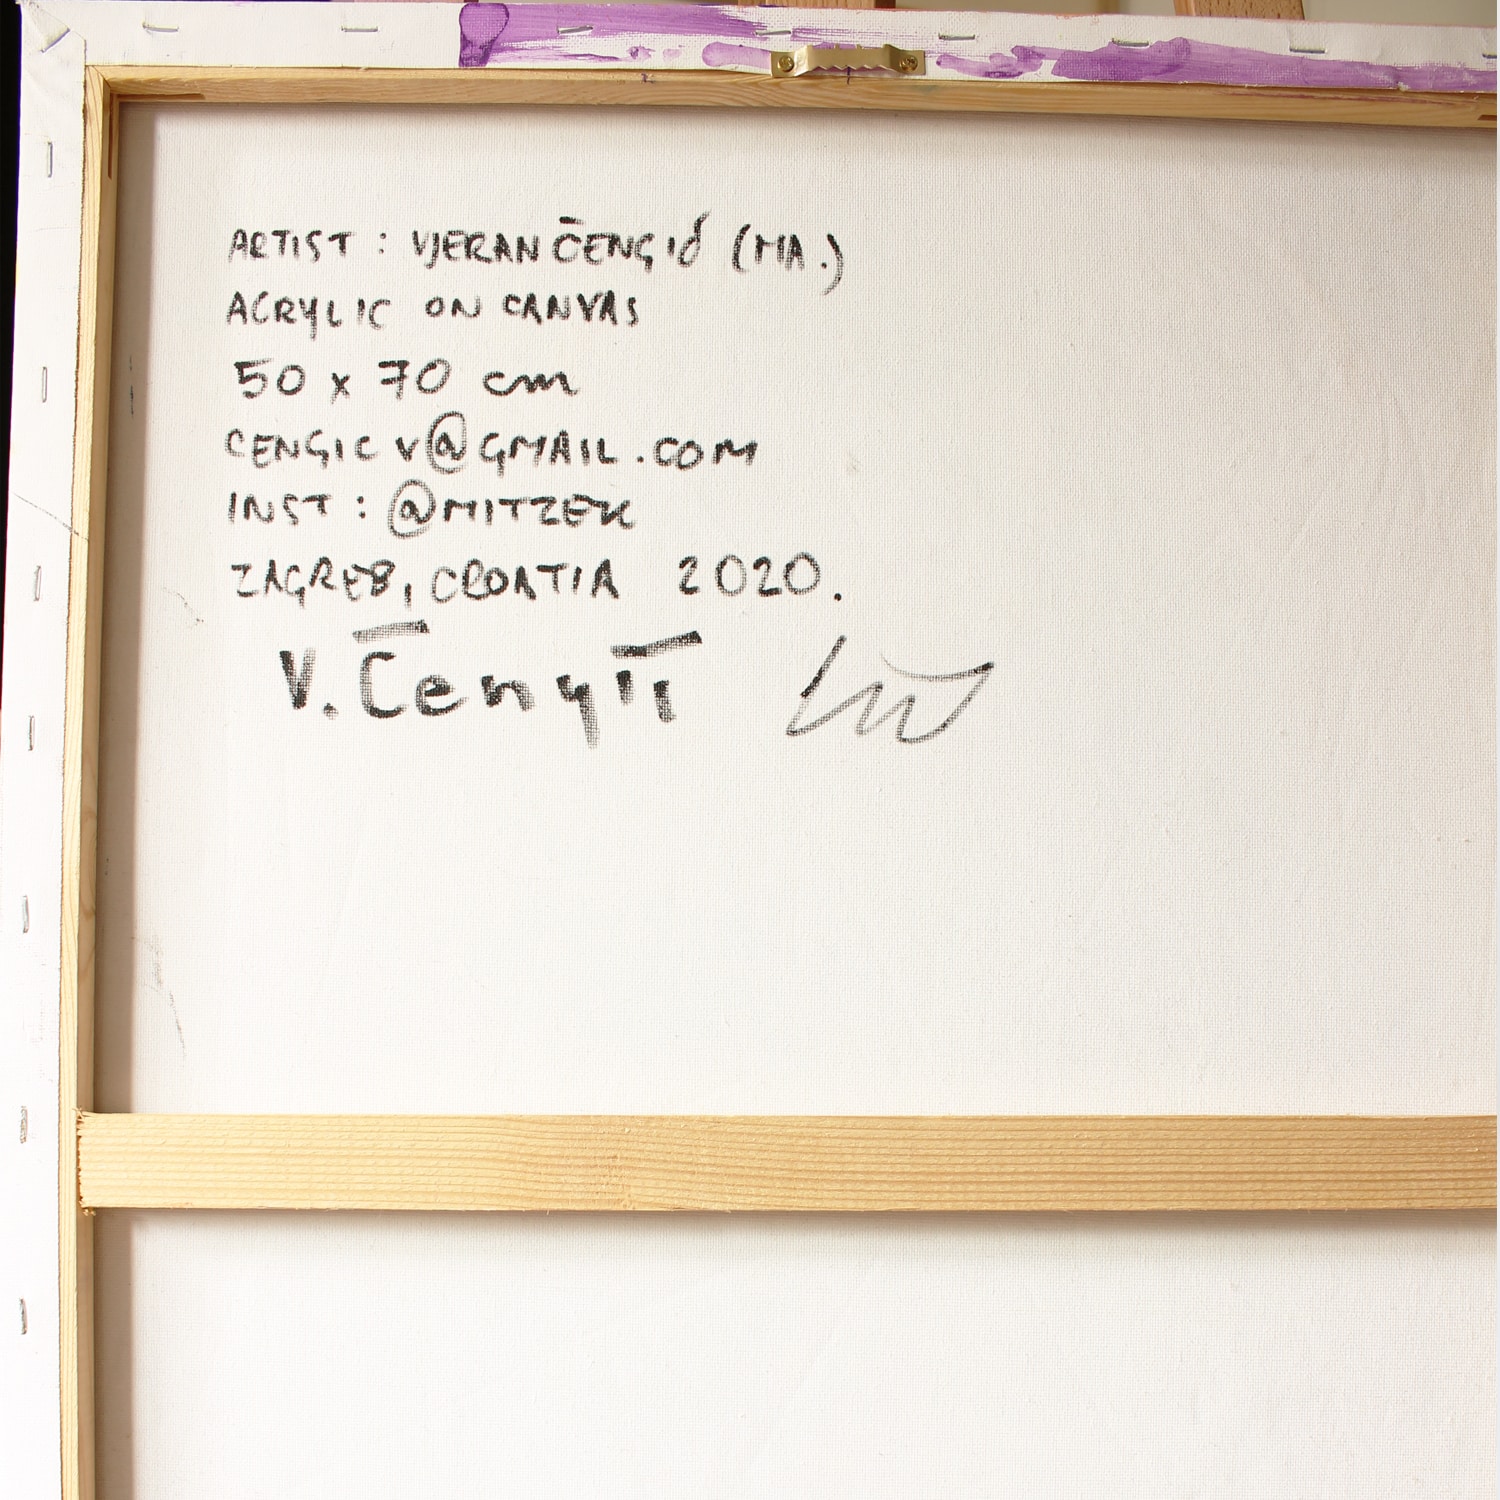 ARTIST : VJERAN ČENGIĆ (MA.)
ACRYLIC ON CANVAS
50 x 70 cm
CENGIC V@GMAIL.COM
INST : @MITZEK
ZAGREB, CROATIA 2020.
V. Čengić